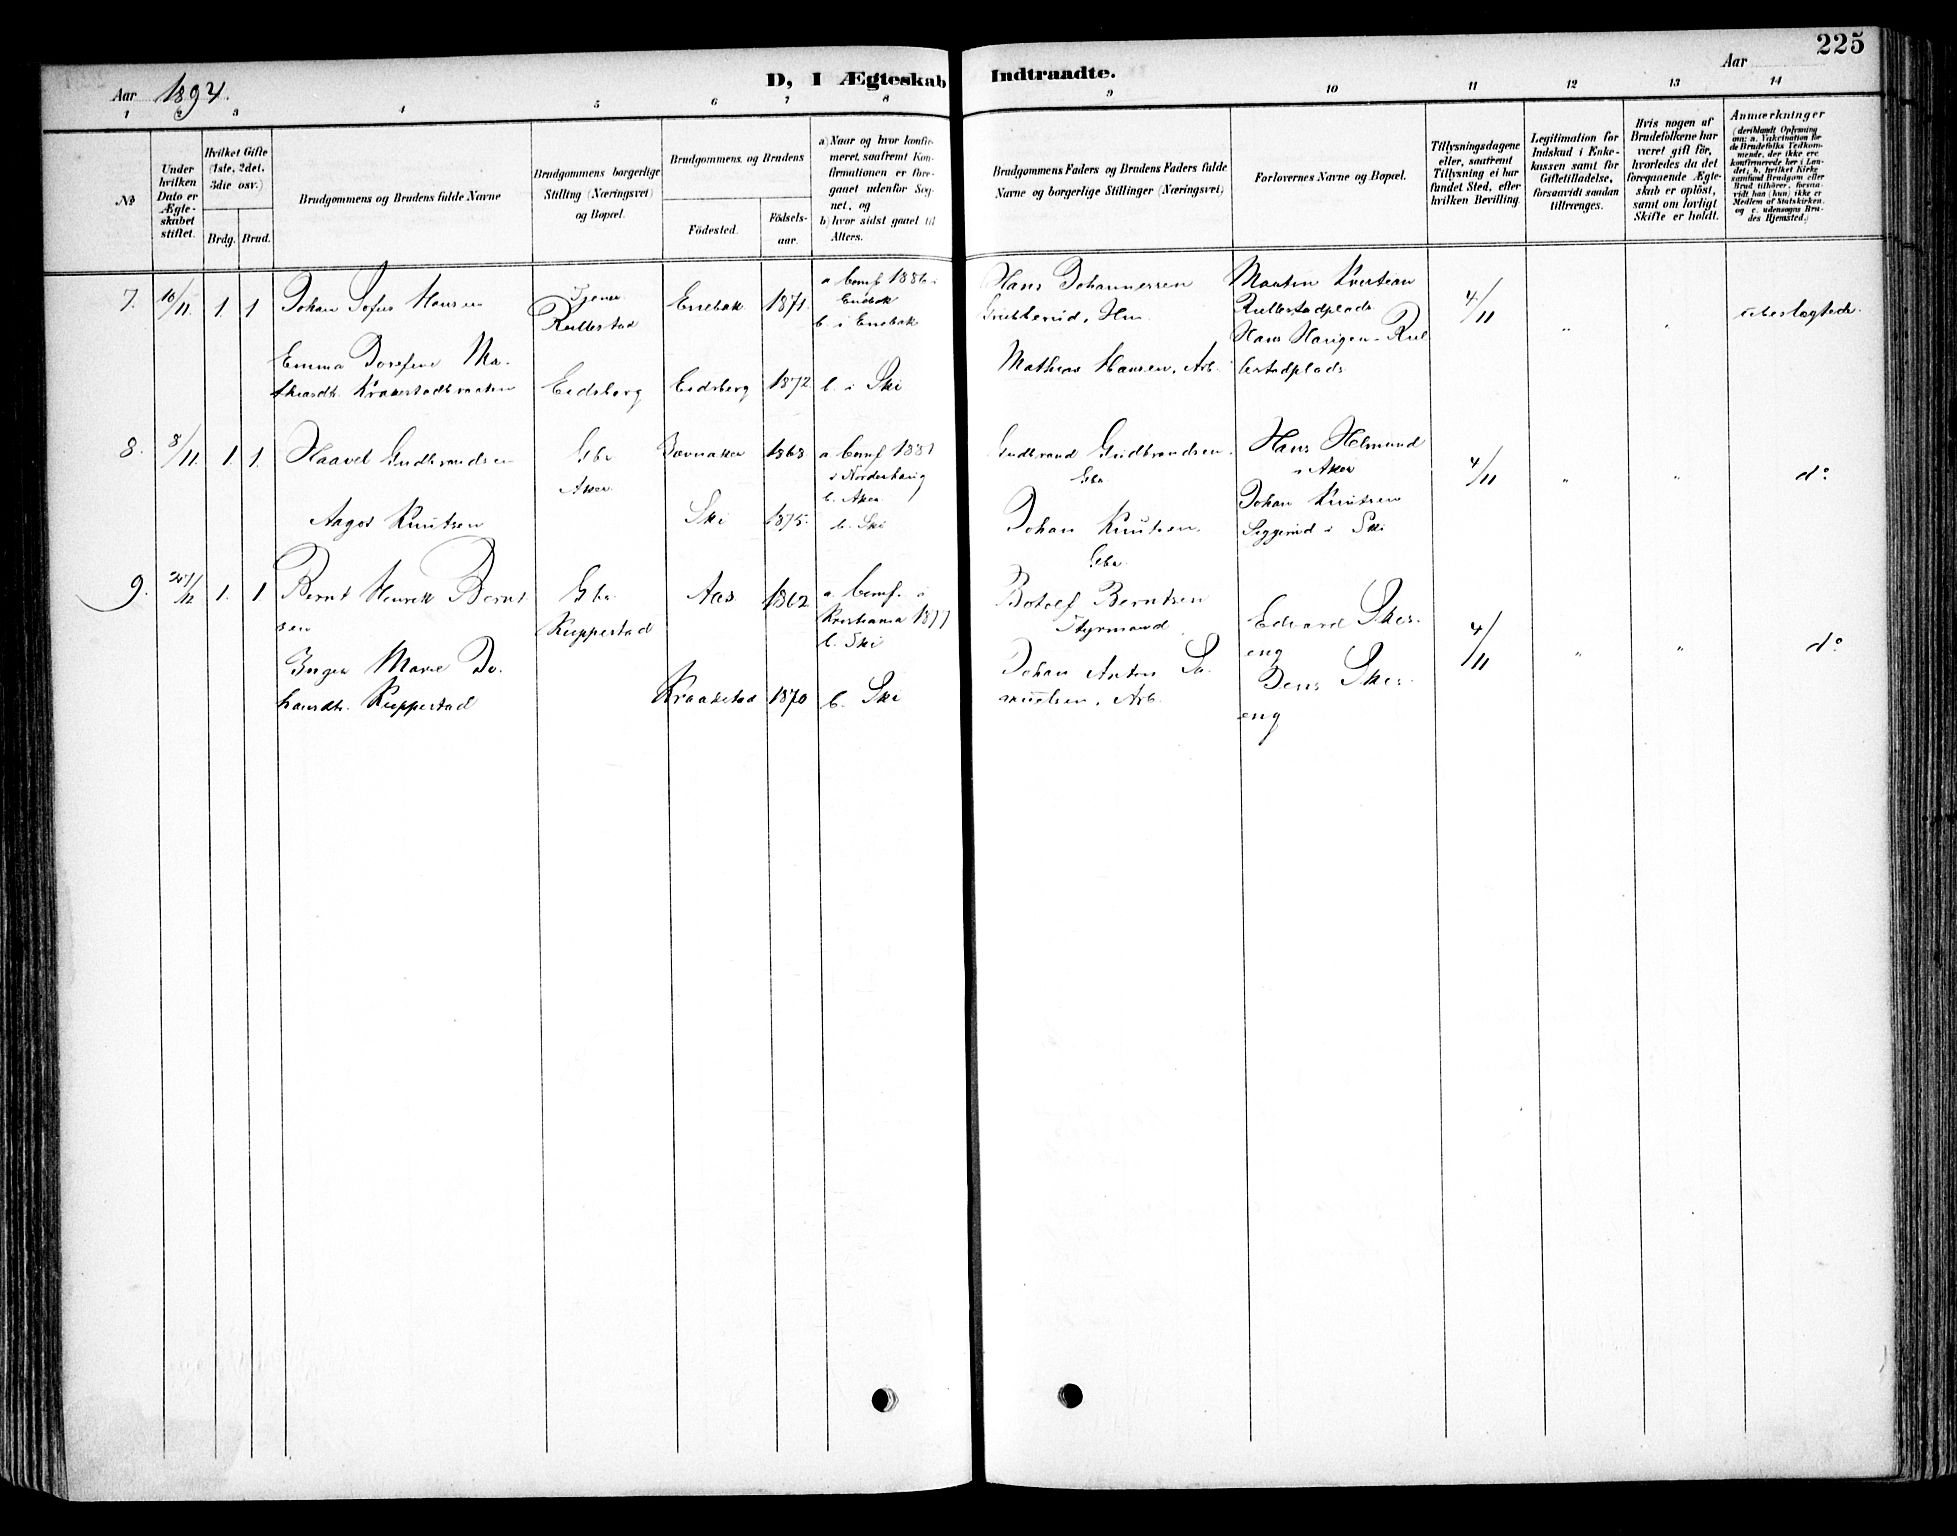 225
Aar 1894.
D, I Ægteskab Indtraadte.
Aar
1 2 3 4 5 6 7 8 9 10 11 12 13 14
№
Under hvilken Dato er Ægteskabet stiftet.
Hvilket Gifte (1ste, 2det, 3die osv.)
Brdg. Brud.
Brudgommens og Brudens fulde Navne
Brudgommens borgerlige Stilling (Næringsvei) og Bopæl.
Brudgommens og Brudens
Födested.
Födselsaar.
a) Naar og hvor konfirmeret, saafremt Konfirmationen er foregaaet udenfor Sognet, og
b) hvor sidst gaaet til Alters.
Brudgommens Faders og Brudens Faders fulde Navne og borgerlige Stillinger (Næringsvei)
Forlovernes Navne og Bopæl.
Tillysningsdagene eller, saafremt Tillysning ei har fundet Sted, efter hvilken Bevilling.
Legitimation for Indskud i Enkekassen samt for Giftetilladelse, forsaavidt saadan tiltrænges.
Hvis nogen af Brudefolkene har været gift før, hvorledes da det foregaaende Ægteskab er oplöst, samt om lovligt Skifte er holdt.
Anmærkninger
(deriblandt Oplysning om: a. Vakcination for de Brudefolks Vedkommende, der ikke ere konfirmerede her i Landet; b. hvilket Kirkesamfund Brudgom eller Brud tilhörer, forsaavidt han (hun) ikke er Medlem af Statskirken, og c. udensogns Brudes Hjemsted.)
7. 10/11. 1. 1 Johan Sofus Hansen
Tjener
Rullestad
Enebak 1871.
a. Conf 1886 i
Enebak
b. i Enebak
Hans Johannessen
Grubberud, Hm
Martin Evertsen
Rullestadplads
4/11 " " ubeslægtede.
Emma Josefine Mathiasdtr. Kraakstadbraaten
Eidsberg Eidsberg 1872 b. i Ski
Mathias Hansen, Arb.
Hans Rullestadplads
8. 8/11. 1. 1. Haavel Gudbrandsen
Gbr
Aker
Jevnaker 1868
a. Conf 1881
i Norderhaug
b. Aker
Gudbrand Gudbrandsen
Gbr.
Hans
i Aker
4/11 " " do
Aagot Knutsen
Ski 1875. b. Ski
Johan Knutsen.
Gbr.
Johan Knutsen
Siggerud i Ski
9. 1. 1 Bernt Henrik Berntsen
Gbr
Kuppestad
Aas 1862
a. Conf. i
Kristiania 1877
b. Ski
Botolf Berntsen
Styrmand
Edvard Skeseng
4/11 " " do
Inger Marie Johansdtr. Kuppestad
Kraakstad 1870 b. Ski
Johan Anton Samuelsen, Arb.
Jens Skeseng